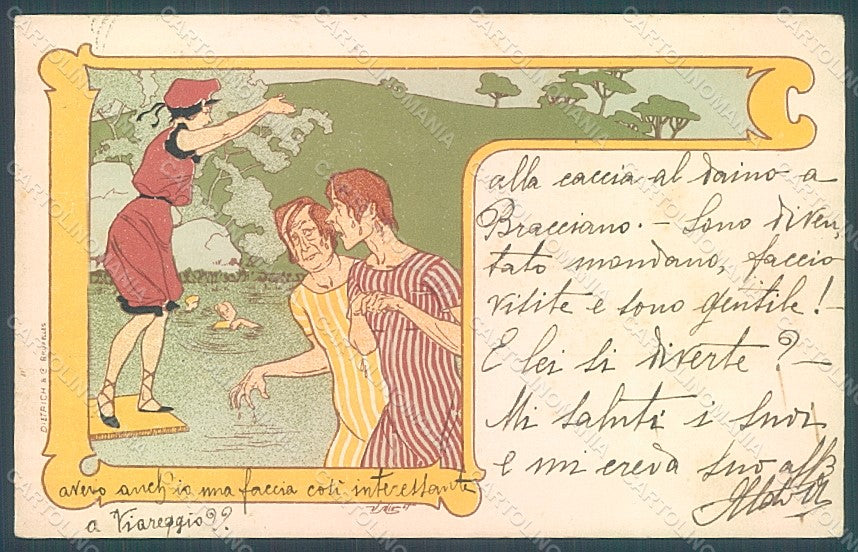 alla caccia al daino a
Bracciano. - Sono diven,
tato mondano, faccio
visite e sono gentile! -
E lei si diverte? -
Mi saluti i suoi
e mi creda suo aff
DIETRICH & Cº BRUXELLES
avevo anch'io una faccia così interessante
a Viareggio??
CARTOLINOMANIA